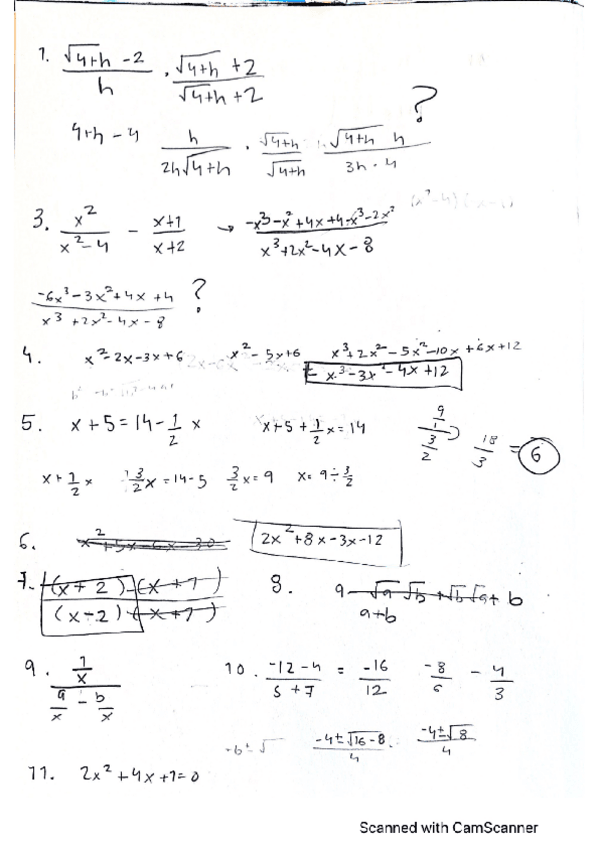 1. (√(4+h) - 2)/h · (√(4+h) + 2)/(√(4+h) + 2)
?
4+h - 4   h/(2h√(4+h)) · √(4+h)/√(4+h)   (√(4+h) h)/(3h · 4)
3. x²/(x²-4) - (x+1)/(x+2) → (-x³-x²+4x+4-x³-2x²)/(x³+2x²-4x-8)
(-6x³-3x²+4x+4)/(x³+2x²-4x-8) ?
4. x²-2x-3x+6   x²-5x+6   x³+2x²-5x²-10x+6x+12
= x³-3x²-4x+12
5. x+5=14-1/2 x   x+5+1/2 x=14   (9/1)/(3/2)   18/3 = 6
x+1/2 x   3/2 x=14-5   3/2 x=9   x=9÷3/2
6. x²+5x-6x-30   2x²+8x-3x-12
7. ((x+2)(x+7))/((x-2)(x+7))   8. a-√a√b+√b√a+b
a+b
9. (1/x)/(a/x - b/x)   10. (-12-4)/(5+7) = -16/12   -8/6   -4/3
-b±√   (-4±√(16-8))/4   (-4±√8)/4
11. 2x²+4x+1=0
Scanned with CamScanner